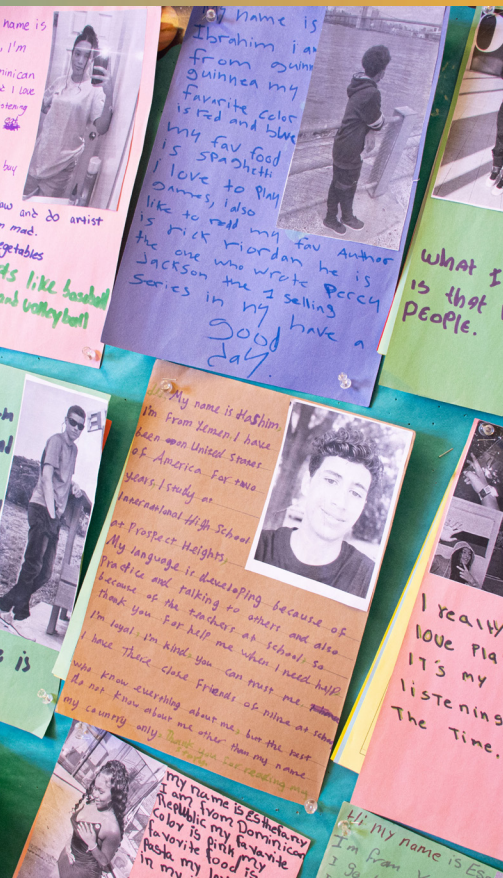 name is
I'm
minican
I love
otening
buy
aw and do artist
n mad.
egetables
ts like baseball
and volleyball
name is
Ibrahim i am
from guinn
guinnea my
favorite color
is red and blue
my fav food
is spaghetti
I love to play
games, i also
like to read my fav Author
is rick riordan he is
the one who wrote Percy
Jackson the 1 selling
series in ny have a
good
day.
WHAT I
is that
PEOPLE.
is
My name is Hashim.
I'm from Yemen. I have
been on United States
of America. For two
years. I study at
International High School
at Prospect Heights.
My language is developing because of
Practice and talking to others and also
because of the teachers at school, so
thank you. For help me when I need help.
I'm loyal, I'm kind, you can trust me.
I have There close friends of mine at scho
who know everything about me, but the rest
do not know about me other than my name
my country only. Thank you for reading my
I really
love pla
IT'S my
listening
The Time.
my name is Esthefany
I am from Dominican
Republic my favarite
color is pink my
favorite food is
pasta my
in my
Hi my name is Es
I'm from
I go